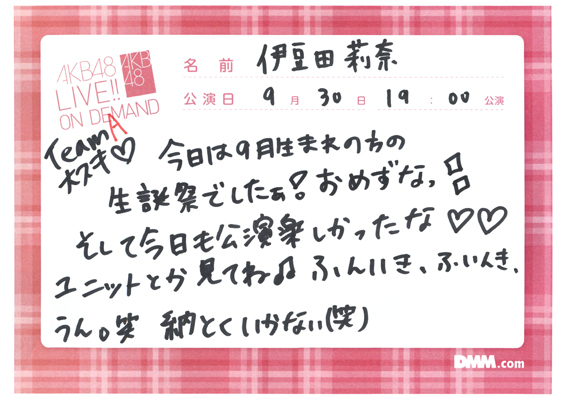 AKB48
LIVE!!
ON DEMAND
AKB
48
名前 伊豆田莉奈
公演日 9月30日19:00公演
TeamA
大スキ♡
今日は9月生まれの方の
生誕祭でしたぁ!おめずなっ!!
そして今日も公演楽しかったな♡♡
ユニットとか見てね♫ ふんいき、ふいんき、
うん。笑 納とくいかない(笑)
DMM.com